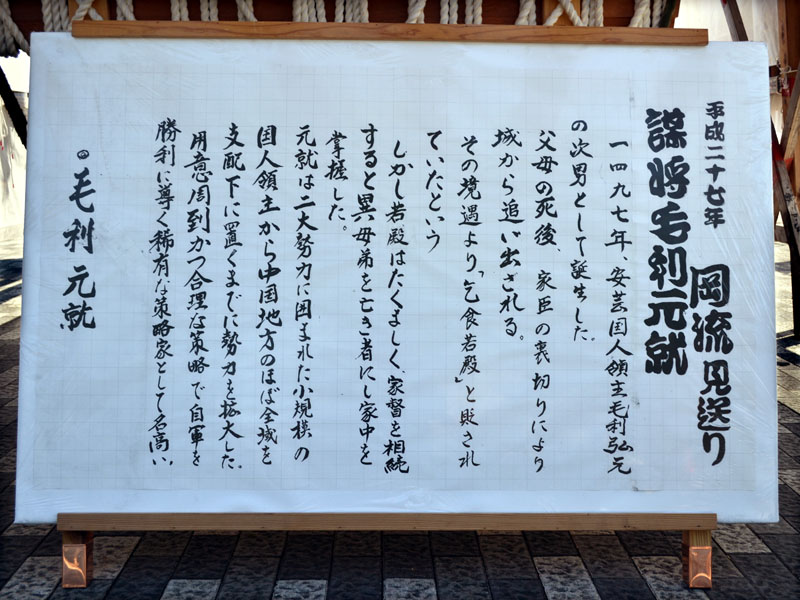 平成二十七年 岡流見送り
謀将毛利元就
一四九七年、安芸国人領主毛利弘元
の次男として誕生した。
父母の死後、家臣の裏切りにより
城から追い出される。
その境遇より「乞食若殿」と貶され
ていたという
しかし若殿はたくましく、家督を相続
すると異母弟を亡き者にし家中を
掌握した。
元就は二大勢力に囲まれた小規模の
国人領主から中国地方のほぼ全域を
支配下に置くまでに勢力を拡大した。
用意周到かつ合理な策略で自軍を
勝利に導く稀有な策略家として名高い
毛利元就